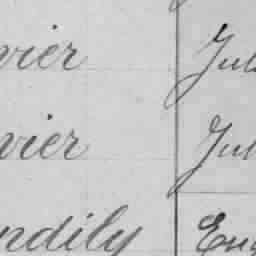 vier Jul
vier Jul
ndily Eug